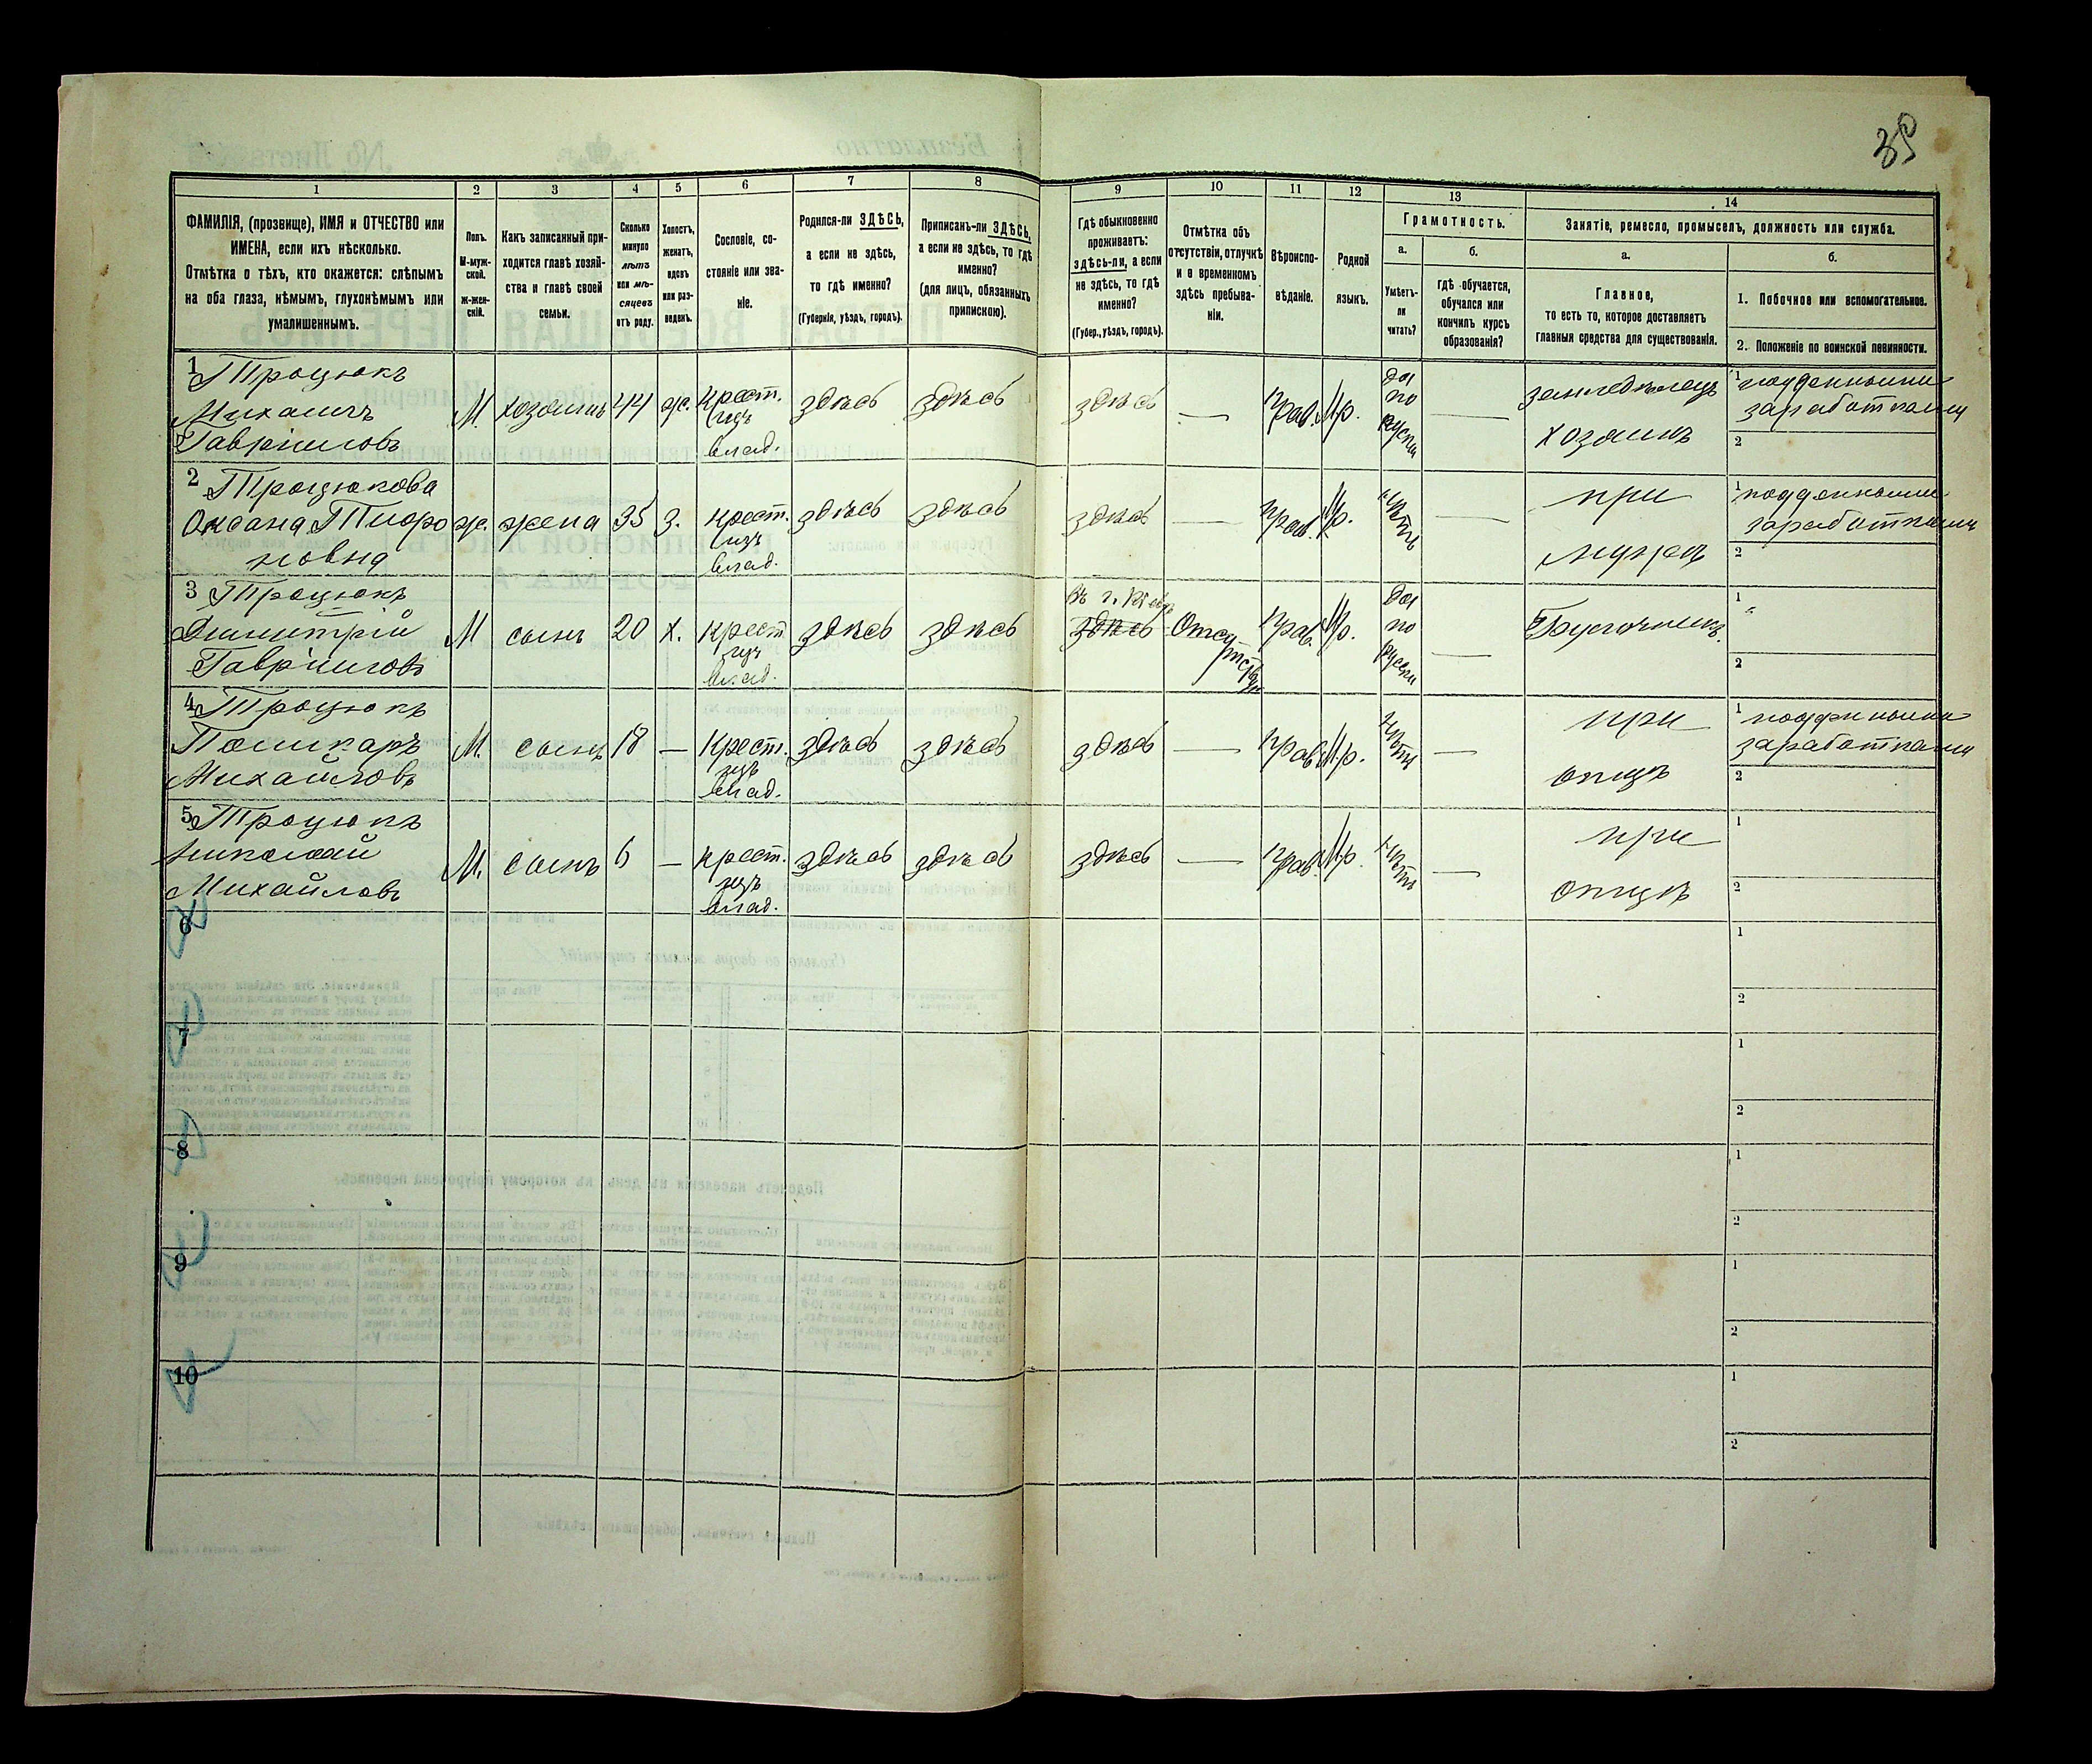 39
1 2 3 4 5 6 7 8 9 10 11 12 13 14
ФАМИЛІЯ, (прозвище), ИМЯ и ОТЧЕСТВО или
ИМЕНА, если ихъ нѣсколько.
Отмѣтка о тѣхъ, кто окажется: слѣпымъ
на оба глаза, нѣмымъ, глухонѣмымъ или
умалишеннымъ.
Полъ.
М-муж-
ской.
Ж-жен-
скій.
Какъ записанный при-
ходится главѣ хозяй-
ства и главѣ своей
семьи.
Сколько
минуло
лѣтъ
или мѣ-
сяцевъ
отъ роду.
Холостъ,
женатъ,
вдовъ
или раз-
веденъ.
Сословіе, со-
стояніе или зва-
ніе.
Родился-ли ЗДѢСЬ,
а если не здѣсь,
то гдѣ именно?
(Губернія, уѣздъ, городъ).
Приписанъ-ли ЗДѢСЬ,
а если не здѣсь, то гдѣ
именно?
(для лицъ, обязанныхъ
припискою).
Гдѣ обыкновенно
проживаетъ:
здѣсь-ли, а если
не здѣсь, то гдѣ
именно?
(Губер., уѣздъ, городъ).
Отмѣтка объ
отсутствіи, отлучкѣ
и о временномъ
здѣсь пребыва-
ніи.
Вѣроиспо-
вѣданіе.
Родной
языкъ.
Грамотность.
а.
Умѣетъ-
ли
читать?
б.
гдѣ обучается,
обучался или
кончилъ курсъ
образованія?
Занятіе, ремесло, промыселъ, должность или служба.
а.
Главное,
то есть то, которое доставляетъ
главныя средства для существованія.
б.
1. Побочное или вспомогательное.
2. Положеніе по воинской повинности.
1 Троцюкъ
Михаилъ
Гавріиловъ
М.
хозяинъ
44
ж.
Крест.
изъ
влад.
здѣсь
здѣсь
здѣсь
—
Прав.
М/р.
да
по
русски
—
земледѣлецъ
хозяинъ
1 поденными
заработками
2
2 Троцюкова
Оксана
новна
ж.
жена
35
З.
Крест.
изъ
влад.
здѣсь
здѣсь
здѣсь
—
Прав.
М/р.
нѣтъ
—
при
мужѣ
1 поденными
заработками
2
3 Троцюкъ
Димитрій
Гавріиловъ
М
сынъ
20
Х.
Крест
изъ
влад.
здѣсь
здѣсь
въ г. Кіевѣ
здѣсь
Отсутствуетъ
Прав.
М/р.
да
по
русски
—
1
2
4 Троцюкъ
Михайловъ
М.
сынъ
18
—
Крест.
изъ
влад.
здѣсь
здѣсь
здѣсь
—
Прав.
М/р.
нѣтъ
—
при
отцѣ
1 поденными
заработками
2
5 Троцюкъ
Николай
Михайловъ
М.
сынъ
6
—
Крест.
изъ
влад.
здѣсь
здѣсь
здѣсь
—
Прав.
М/р.
нѣтъ
—
при
отцѣ
1
2
6
1
2
7
1
2
8
1
2
9
1
2
10
1
2